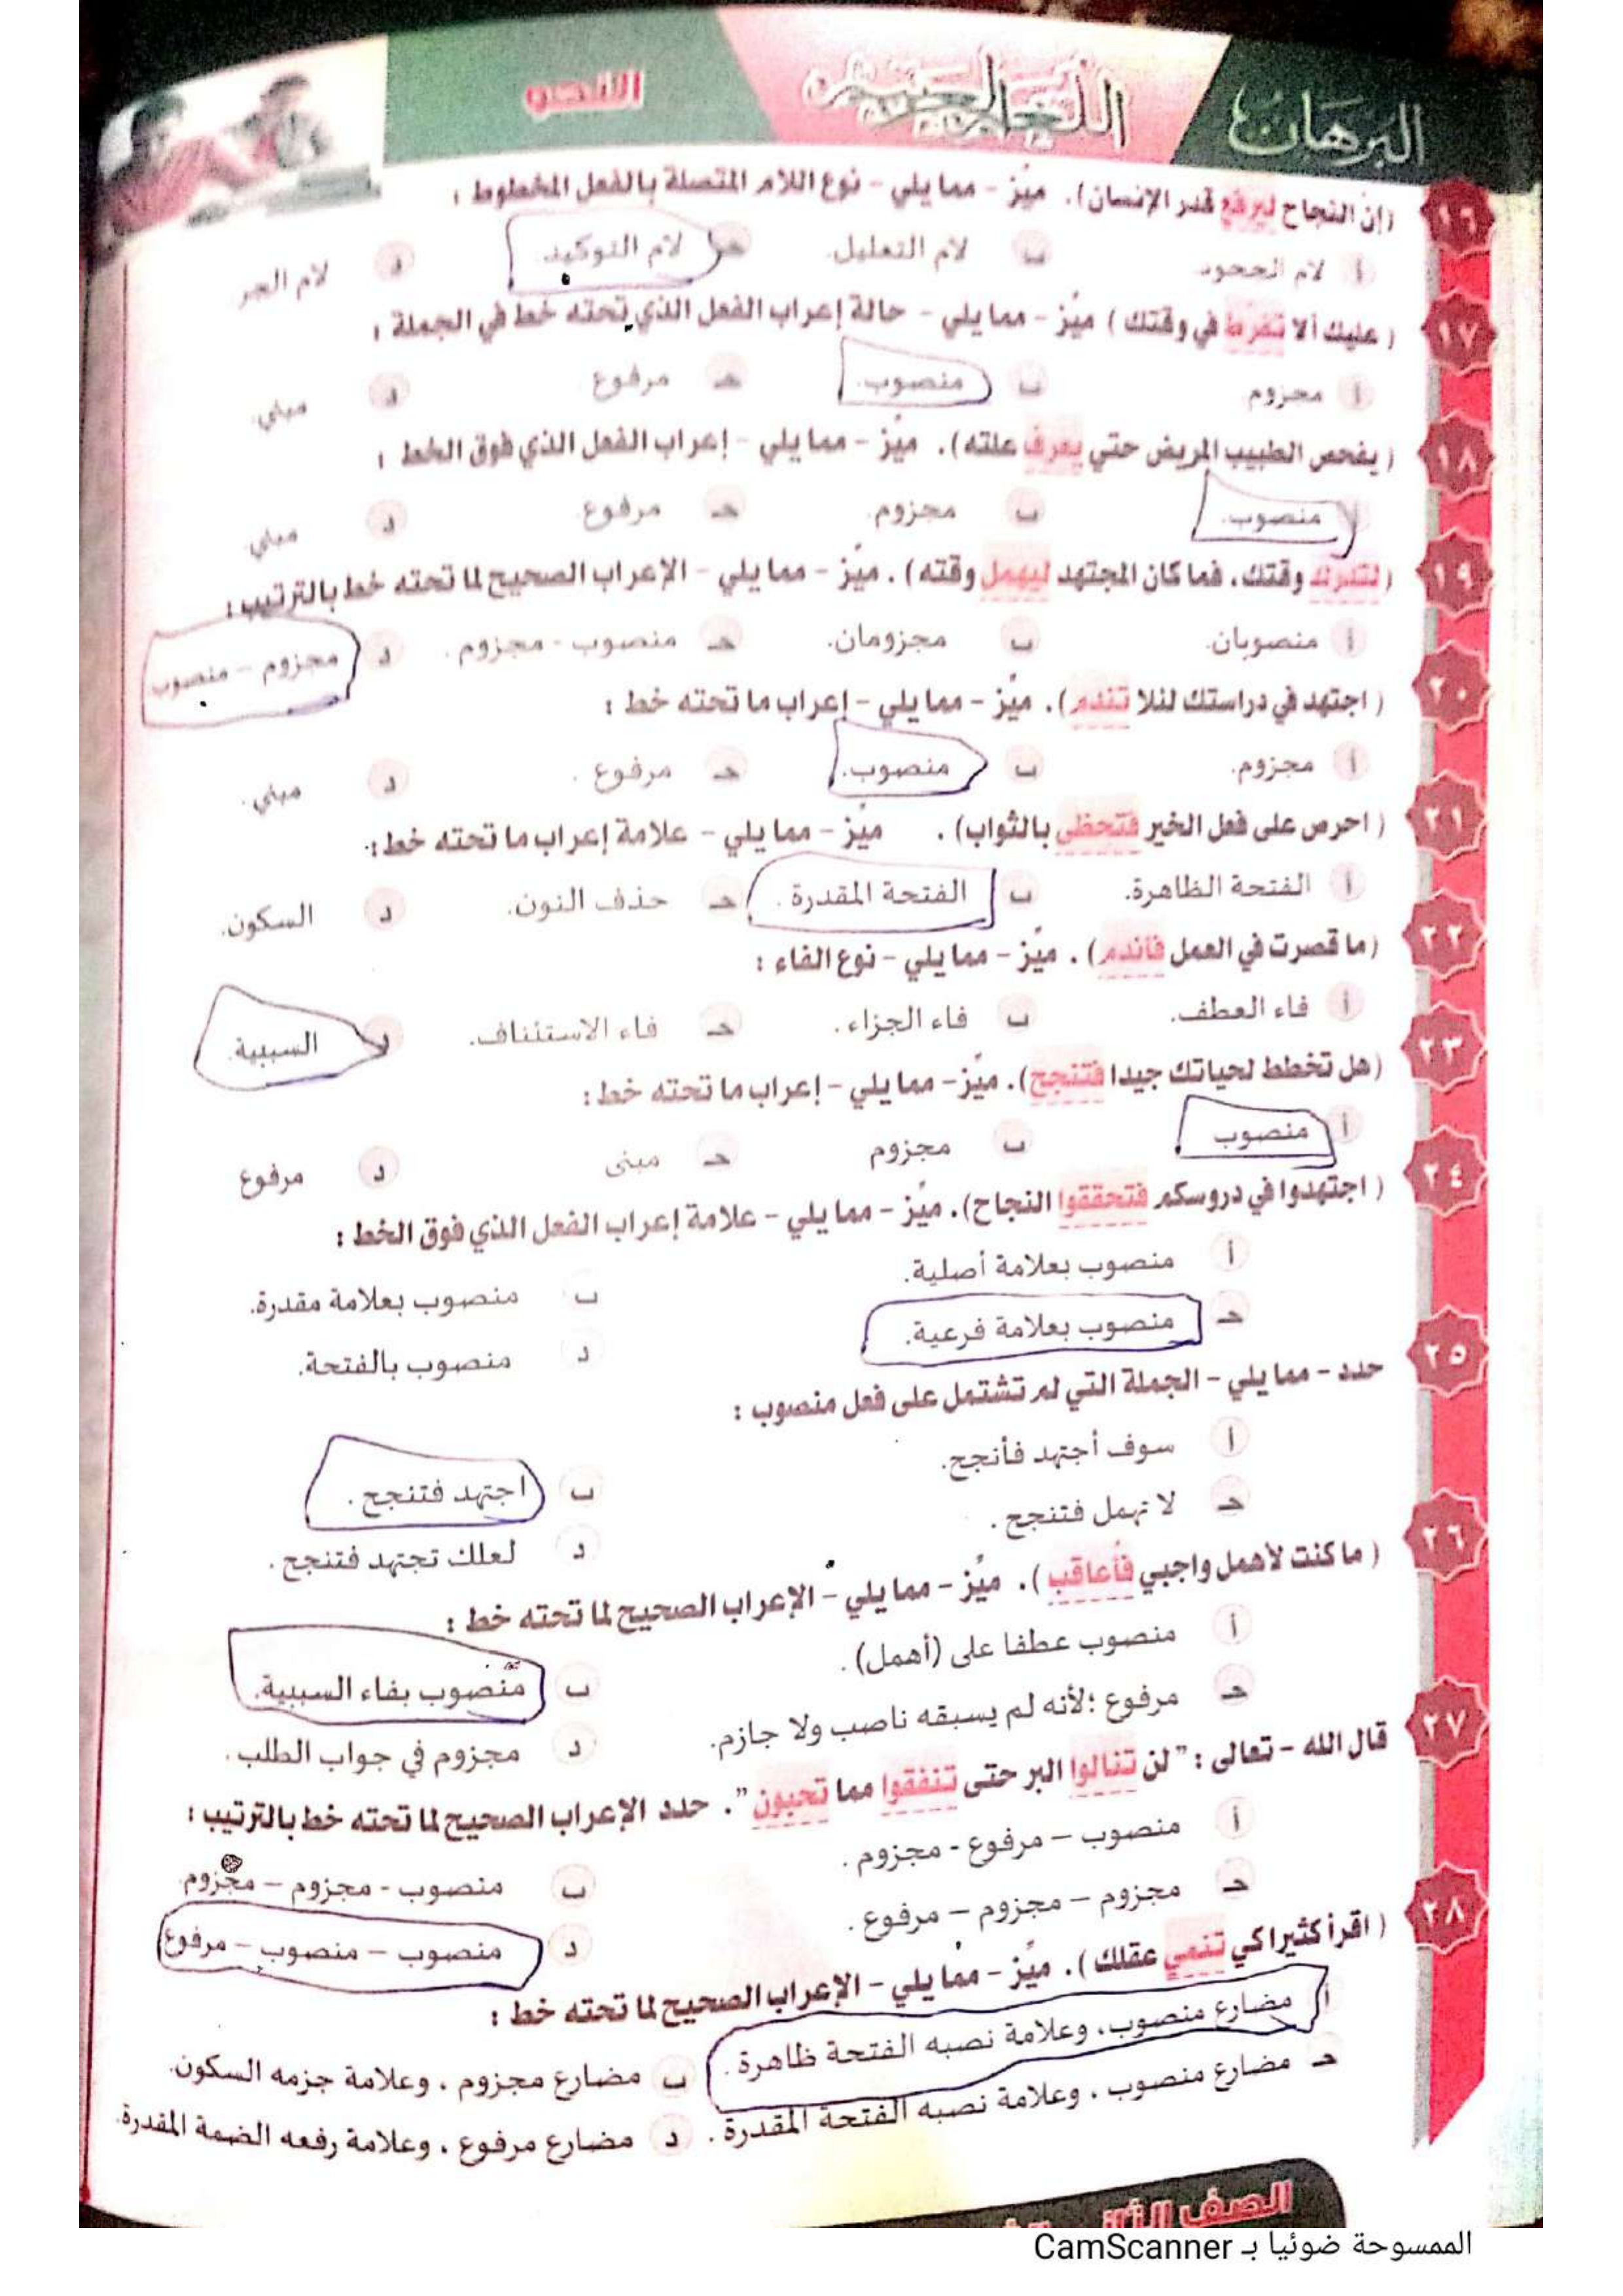 البرهان
اللغة العربية
النحو
١٦ (إن النجاح ليرفع قدر الإنسان). ميّز - مما يلي - نوع اللام المتصلة بالفعل المخطوط :
أ لام الجحود ب لام التعليل. حـ لام التوكيد. د لام الجر
١٧ ( عليك ألا تفرط في وقتك ) ميّز - مما يلي - حالة إعراب الفعل الذي تحته خط في الجملة :
أ مجزوم ب منصوب. حـ مرفوع د مبني.
١٨ ( يفحص الطبيب المريض حتي يعرف علته). ميّز - مما يلي - إعراب الفعل الذي فوق الخط :
أ منصوب. ب مجزوم. حـ مرفوع د مبني.
١٩ (لتدرك وقتك، فما كان المجتهد ليهمل وقته) . ميّز - مما يلي - الإعراب الصحيح لما تحته خط بالترتيب :
أ منصوبان. ب مجزومان. حـ منصوب - مجزوم . د مجزوم - منصوب
٢٠ ( اجتهد في دراستك لئلا تندم). ميّز - مما يلي - إعراب ما تحته خط :
أ مجزوم. ب منصوب. حـ مرفوع . د مبني .
٢١ ( احرص على فعل الخير فتحظى بالثواب) . ميّز - مما يلي - علامة إعراب ما تحته خط :
أ الفتحة الظاهرة. ب الفتحة المقدرة . حـ حذف النون. د السكون.
٢٢ (ما قصرت في العمل فأندم) . ميّز - مما يلي - نوع الفاء :
أ فاء العطف. ب فاء الجزاء . حـ فاء الاستئناف. د السببية.
٢٣ (هل تخطط لحياتك جيدا فتنجح). ميّز - مما يلي - إعراب ما تحته خط :
أ منصوب ب مجزوم حـ مبنى د مرفوع
٢٤ ( اجتهدوا في دروسكم فتحققوا النجاح). ميّز - مما يلي - علامة إعراب الفعل الذي فوق الخط :
أ منصوب بعلامة أصلية. ب منصوب بعلامة مقدرة.
حـ منصوب بعلامة فرعية. د منصوب بالفتحة.
٢٥ حدد - مما يلي - الجملة التي لم تشتمل على فعل منصوب :
أ سوف أجتهد فأنجح. ب اجتهد فتنجح .
حـ لا تهمل فتنجح . د لعلك تجتهد فتنجح .
٢٦ ( ما كنت لأهمل واجبي فأعاقب ) . ميّز - مما يلي - الإعراب الصحيح لما تحته خط :
أ منصوب عطفا على (أهمل) . ب منصوب بفاء السببية.
حـ مرفوع ؛لأنه لم يسبقه ناصب ولا جازم. د مجزوم في جواب الطلب .
٢٧ قال الله - تعالى : " لن تنالوا البر حتى تنفقوا مما تحبون ". حدد الإعراب الصحيح لما تحته خط بالترتيب :
أ منصوب – مرفوع - مجزوم . ب منصوب - مجزوم – مجزوم
حـ مجزوم – مجزوم – مرفوع . د منصوب – منصوب – مرفوع
٢٨ ( اقرأ كثيرا كي تنمي عقلك ) . ميّز - مما يلي - الإعراب الصحيح لما تحته خط :
أ مضارع منصوب، وعلامة نصبه الفتحة ظاهرة . ب مضارع مجزوم ، وعلامة جزمه السكون.
حـ مضارع منصوب ، وعلامة نصبه الفتحة المقدرة . د مضارع مرفوع ، وعلامة رفعه الضمة المقدرة.
الصف
الممسوحة ضوئيا بـ CamScanner